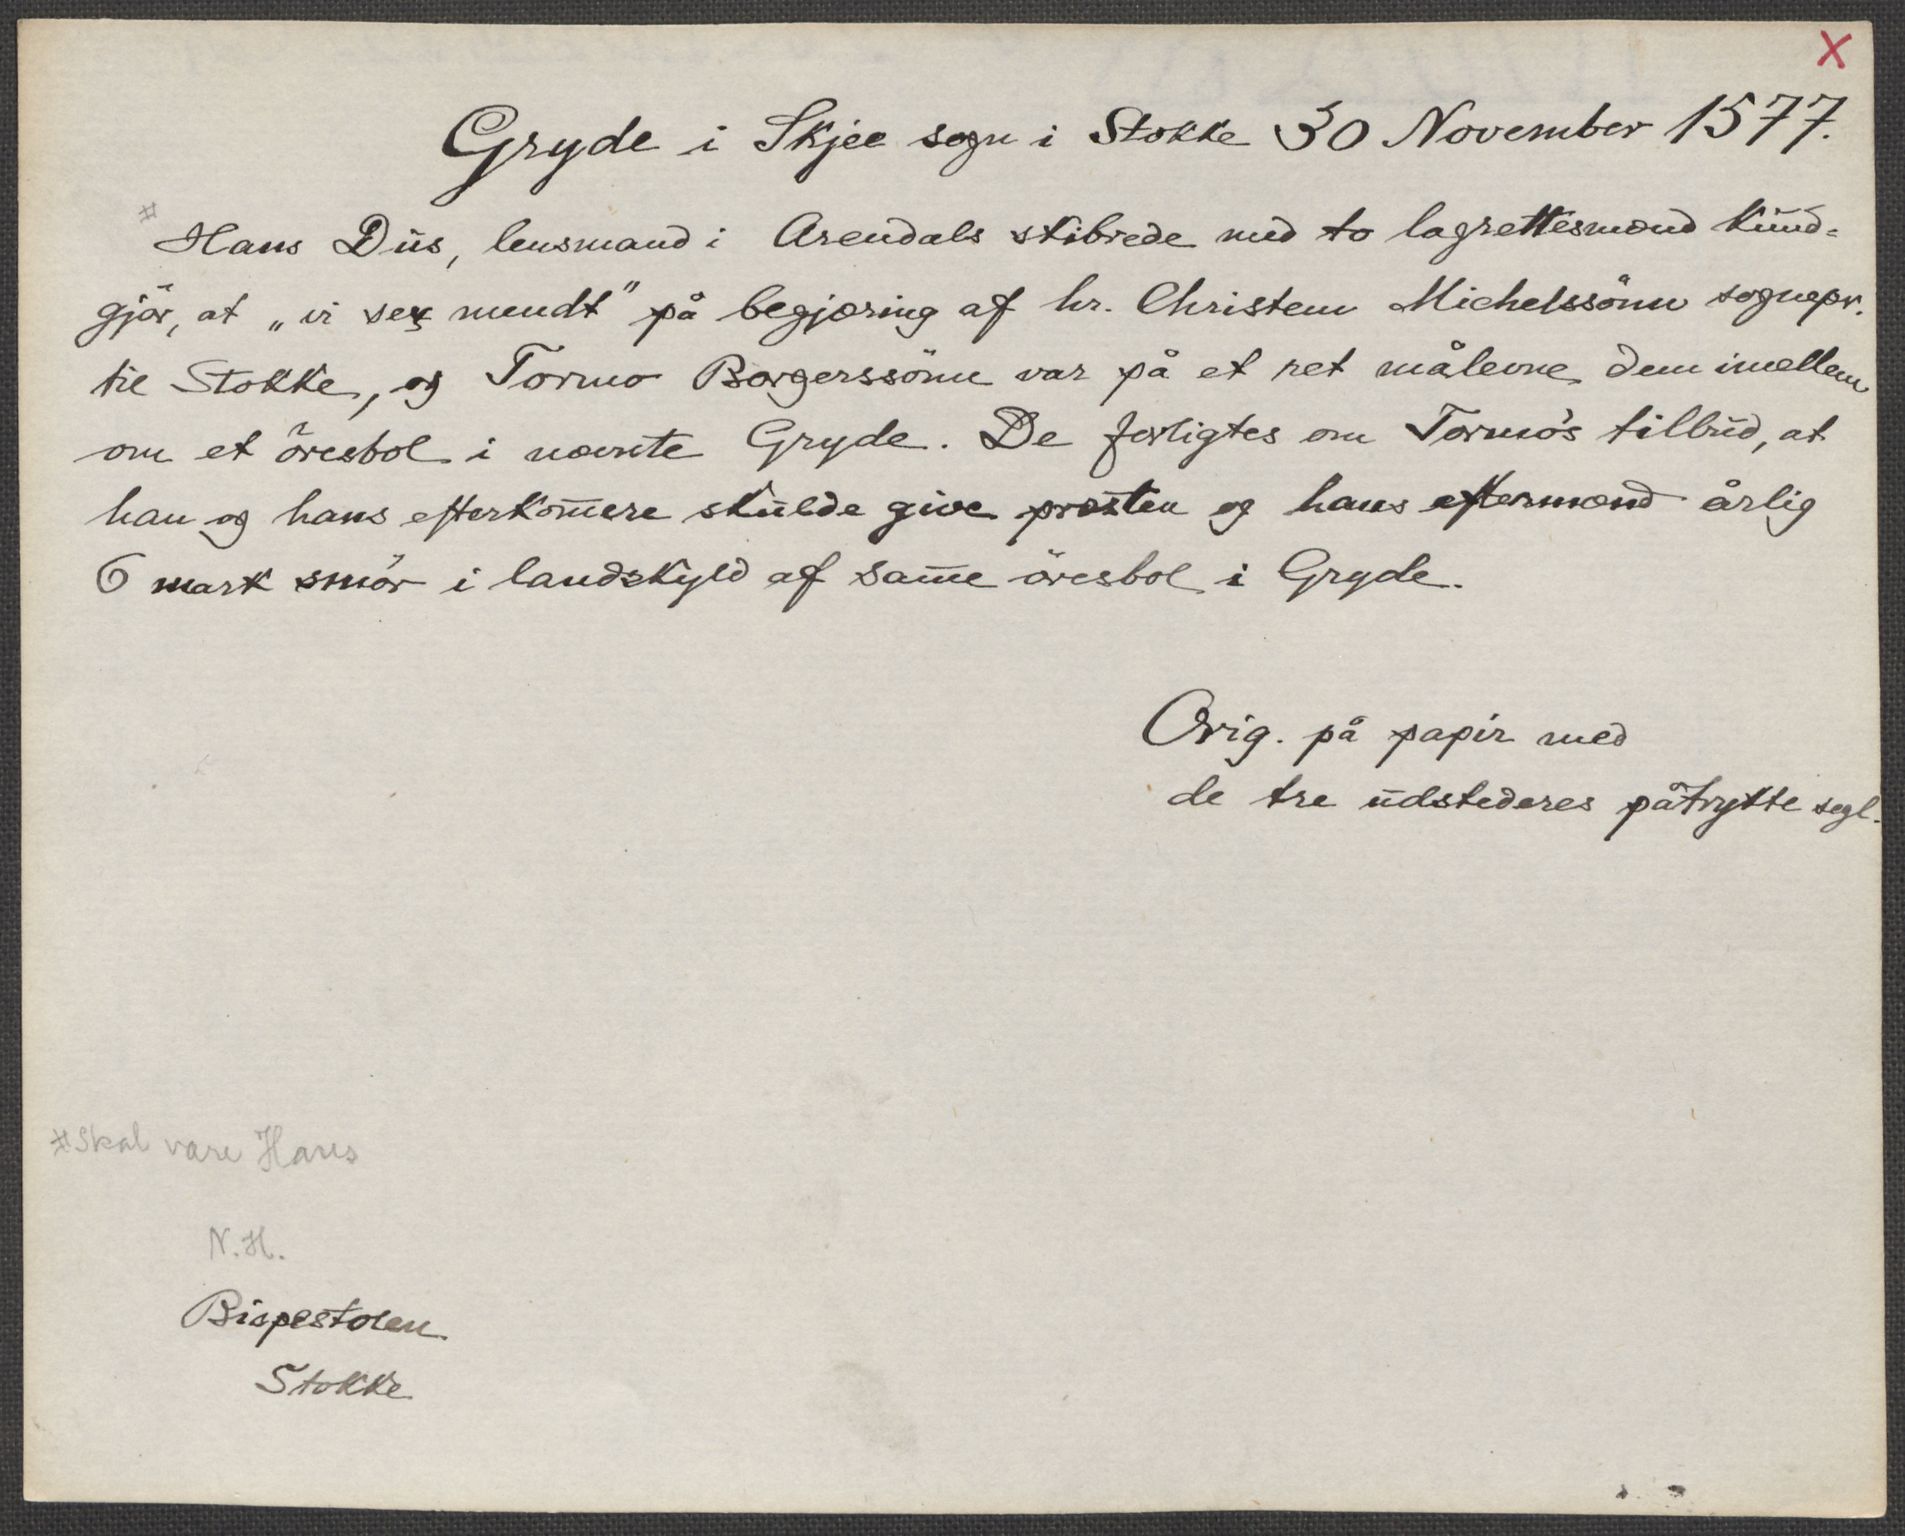 X
Gryde i Skjee sogn i Stokke 30 November 1577.
# Hans Dus, lensmand i Arendals skibrede med to lagrettesmænd kund-
gjör, at „vi sex mendt" på begjæring af hr. Christenn Michelssönn sognepr.
til Stokke, og Tormo Borgerssönn var på et ret målevne dem imellem
om et öresbol i nævnte Gryde. De forligtes om Tormo's tilbud, at
han og hans efterkom̅ere skulde give præsten og hans eftermænd årlig
6 mark smör i landskyld af sam̅e öresbol i Gryde.
Orig. på papir med
de tre udstederes påtrykte segl.
# Skal være Hans
N.H.
Bispestolen
Stokke